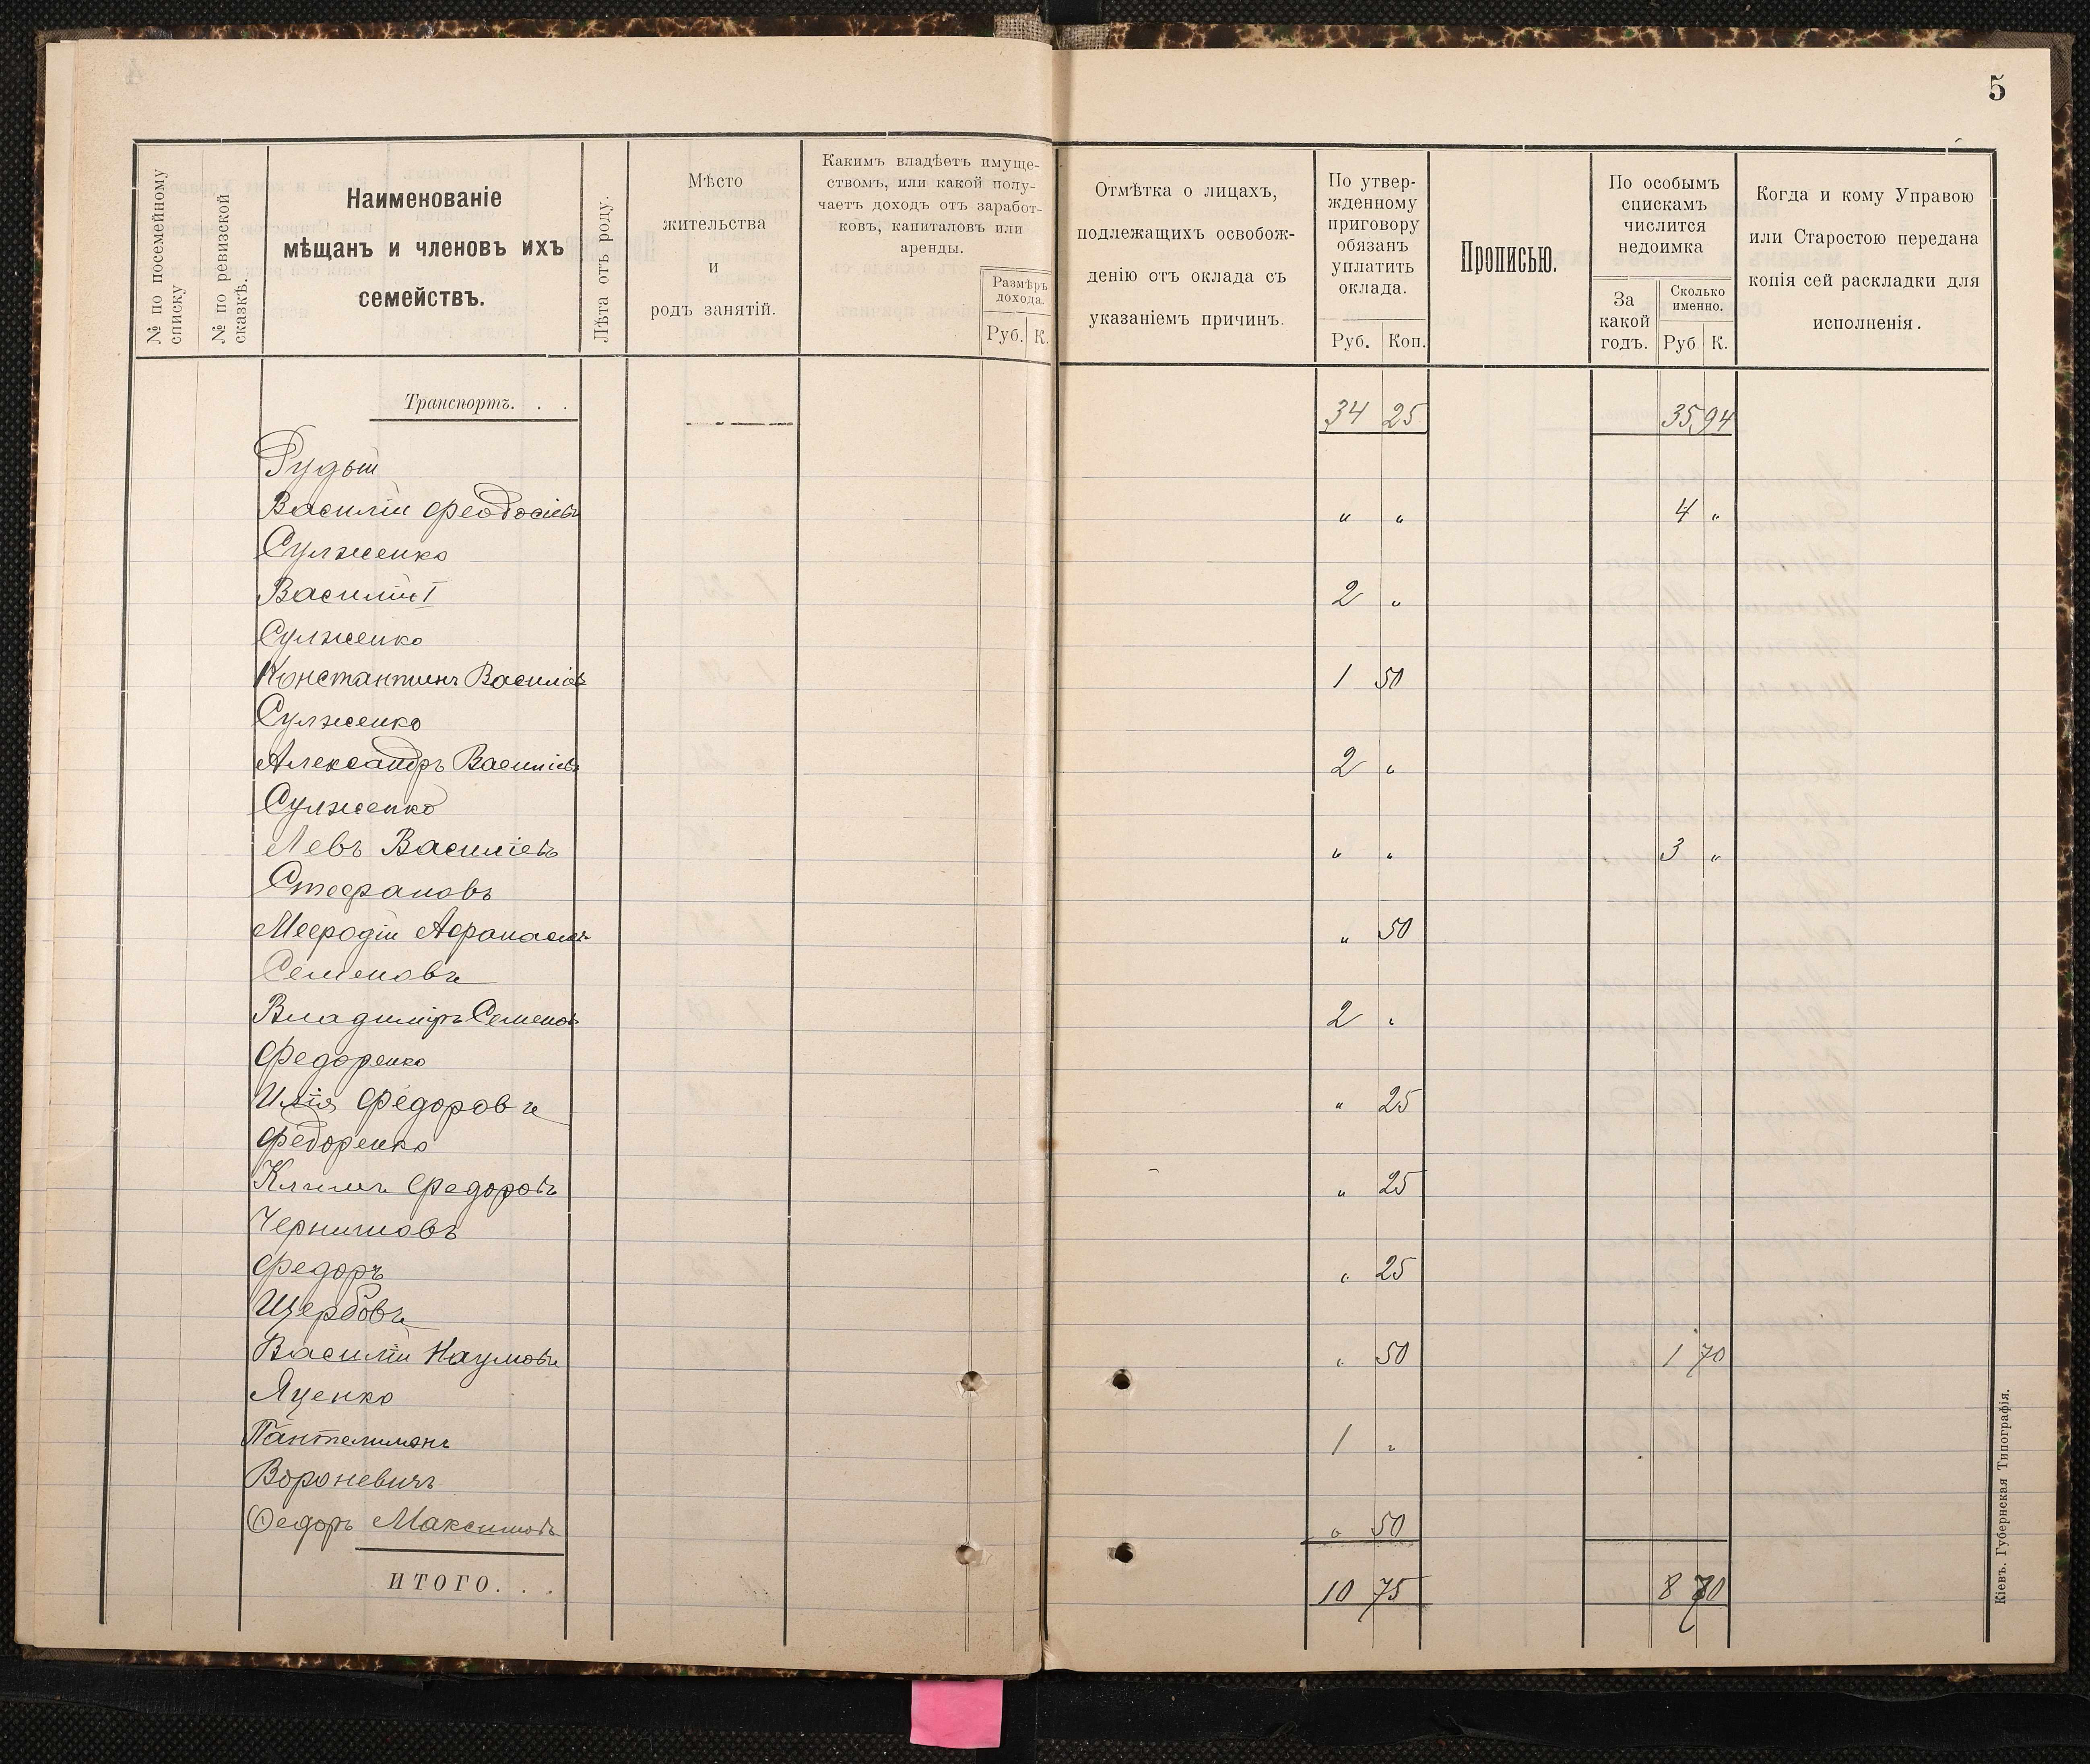 5
№ по посемейному списку
№ по ревизской сказкѣ.
Наименованіе
мѣщанъ и членовъ ихъ
семействъ.
Лѣта отъ роду.
Мѣсто
жительства
и
родъ занятій.
Какимъ владѣетъ имуще-
ствомъ, или какой полу-
чаетъ доходъ отъ заработ-
ковъ, капиталовъ или
аренды.
Размѣръ
дохода.
Руб. К.
Отмѣтка о лицахъ,
подлежащихъ освобож-
денію отъ оклада съ
указаніемъ причинъ.
По утвер-
жденному
приговору
обязанъ
уплатить
оклада.
Руб. Коп.
Прописью.
По особымъ
спискамъ
числится
недоимка
За
какой
годъ.
Сколько
именно.
Руб К.
Когда и кому Управою
или Старостою передана
копія сей раскладки для
исполненія.
Транспортъ. . . 34 25 35 94
Рудый
Василій Феодосіевъ " " 4 "
Сулженко
Василій I 2 "
Сулженко
Константинъ Василіев 1 50
Сулженко
Александръ Василіевъ 2 "
Сулженко
Левъ Василіевъ " " 3 "
Стефановъ
Мефодій Афанасіевъ " 50
Семеновъ
Владиміръ Семеновъ 2 "
Федоренко
Илія Федоровъ " 25
Федоренко
Климъ Федоровъ " 25
Чернишовъ
Федоръ " 25
Щербовъ
Василій Наумовъ " 50 1 70
Яценко
Пантелимонъ 1 "
Вороневичъ
Ѳедоръ Максимовъ " 50
ИТОГО. . . 10 75 8 70
Кіевъ. Губернская Типографія.